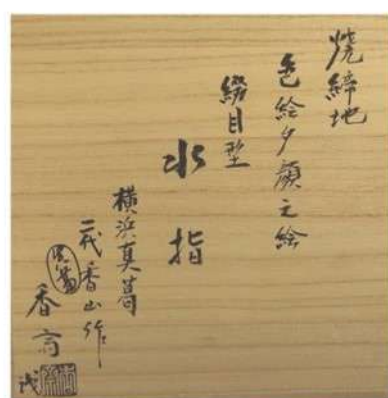 焼締地
色絵夕顔之絵
綴目型
水指
横浜真葛
二代香山作
真葛
香斎
識